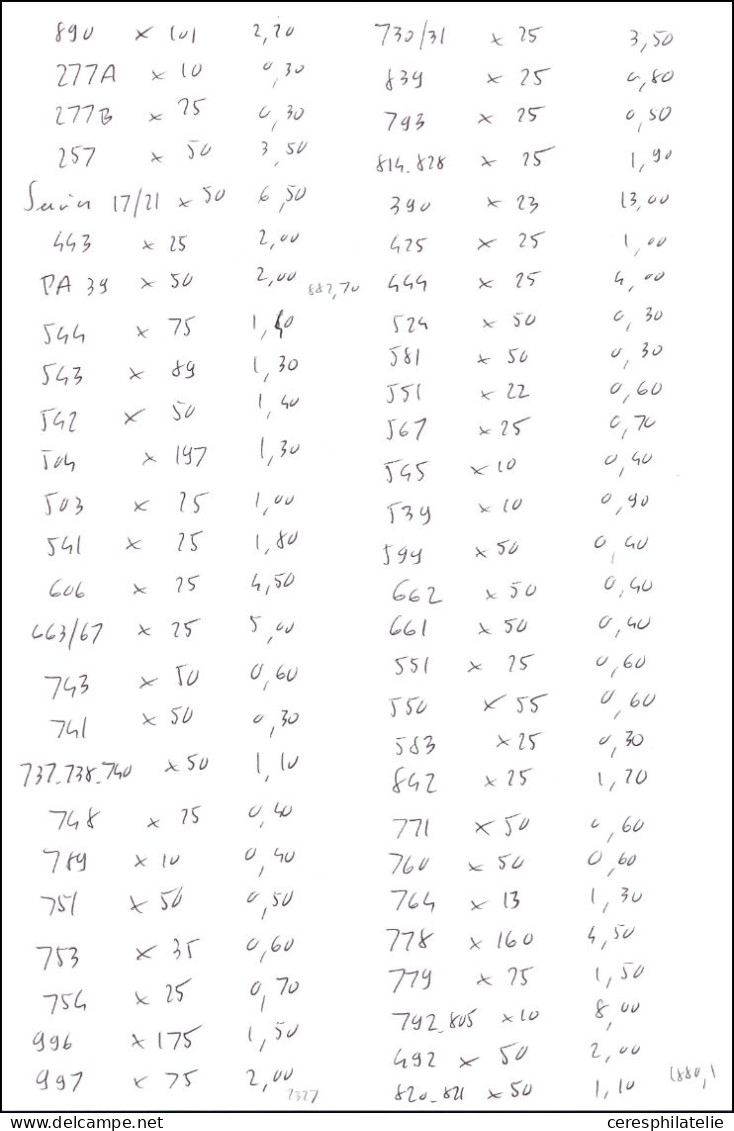 890 x 101 2,20
277A x 10 0,30
277B x 25 0,30
257 x 50 3,50
Servier 17/21 x 50 6,50
443 x 25 2,00
PA 39 x 50 2,00
882,70
544 x 75 1,40
543 x 89 1,30
542 x 50 1,40
504 x 197 1,30
503 x 25 1,00
541 x 25 1,80
606 x 25 4,50
663/67 x 25 5,00
743 x 50 0,60
741 x 50 0,30
737-738-740 x 50 1,10
748 x 25 0,40
789 x 10 0,40
751 x 50 0,50
753 x 35 0,60
754 x 25 0,70
996 x 175 1,50
997 x 75 2,00
2327
730/31 x 25 3,50
839 x 25 0,80
793 x 25 0,50
814-828 x 25 1,90
390 x 23 13,00
425 x 25 1,00
444 x 25 4,00
524 x 50 0,30
581 x 50 0,30
551 x 22 0,60
567 x 25 0,70
545 x 10 0,40
539 x 10 0,90
599 x 50 0,40
662 x 50 0,40
661 x 50 0,40
551 x 25 0,60
550 x 55 0,60
583 x 25 0,30
842 x 25 1,20
771 x 50 0,60
760 x 50 0,60
764 x 13 1,30
778 x 160 4,50
779 x 25 1,50
792-805 x 10 8,00
492 x 50 2,00
820-821 x 50 1,10
1880,1
www.delcampe.net
ceresphilatelie